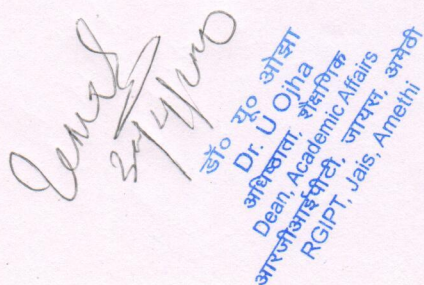 डॉ० यू० ओझा
Dr. U Ojha
अधिष्ठाता, शैक्षणिक
Dean, Academic Affairs
आरजीआईपीटी, जायस, अमेठी
RGIPT, Jais, Amethi